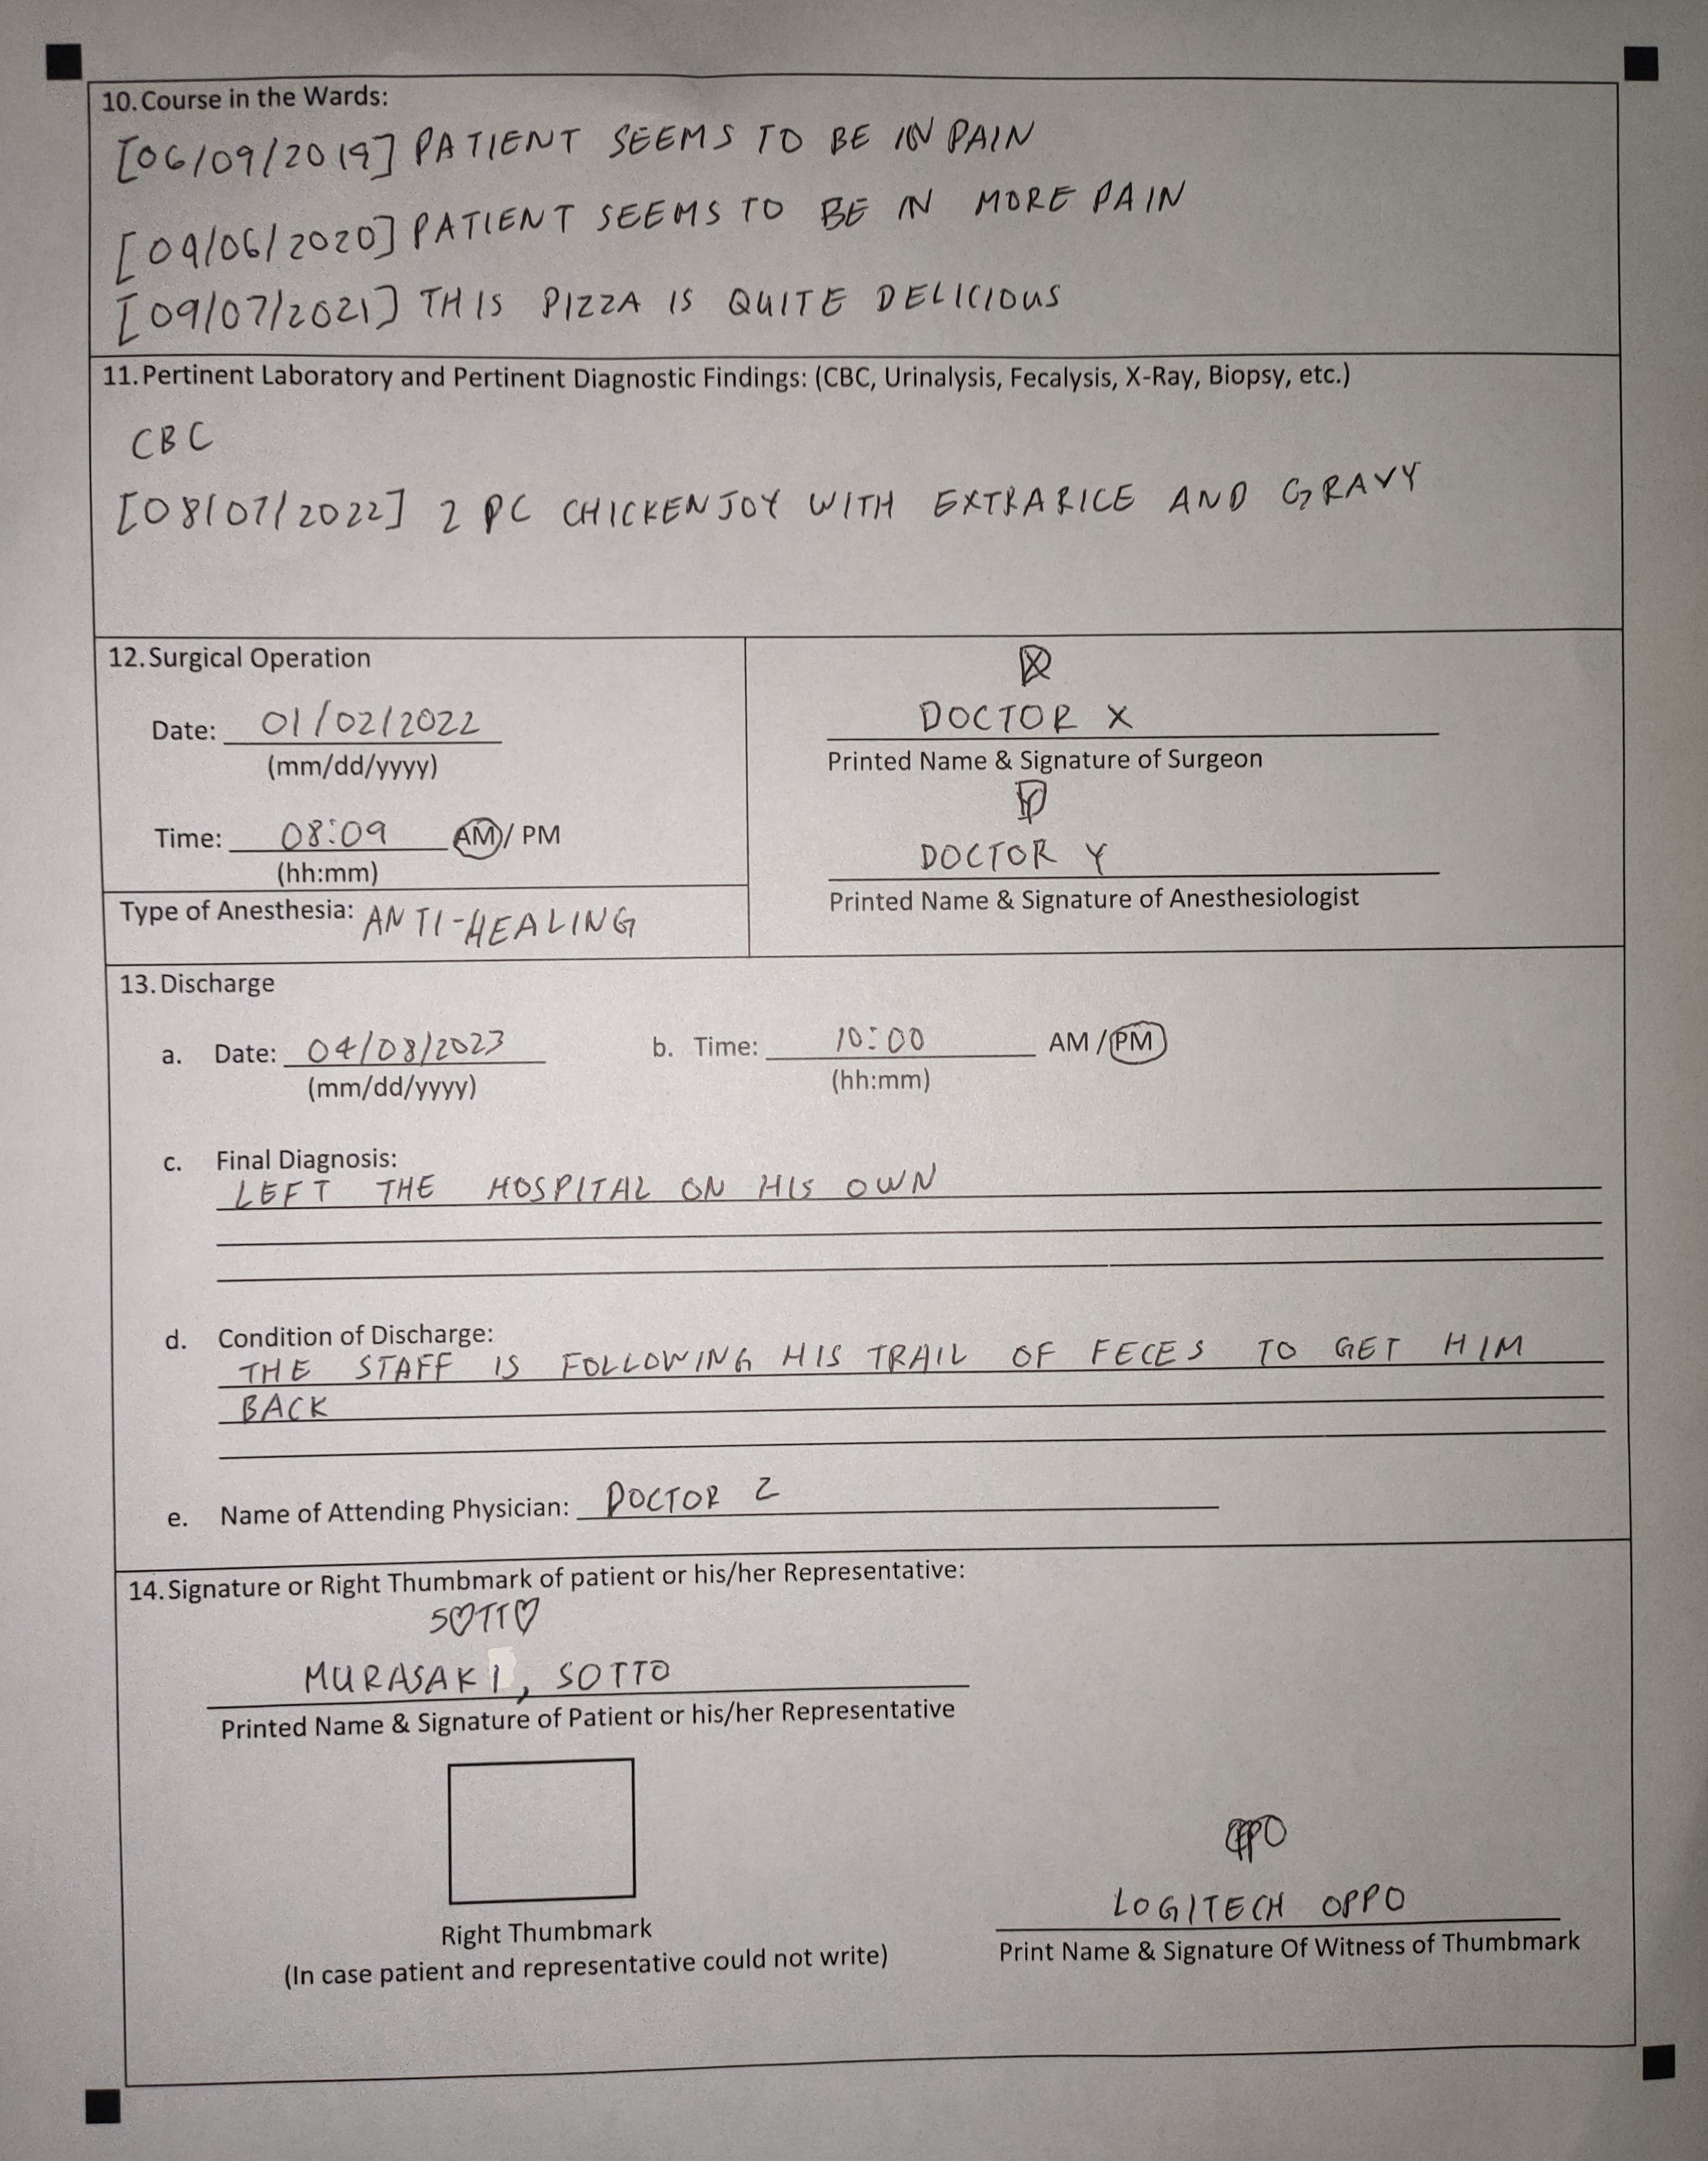 10. Course in the Wards:
[06/09/2019] PATIENT SEEMS TO BE IN PAIN
[09/06/2020] PATIENT SEEMS TO BE IN MORE PAIN
[09/07/2021] THIS PIZZA IS QUITE DELICIOUS
11. Pertinent Laboratory and Pertinent Diagnostic Findings: (CBC, Urinalysis, Fecalysis, X-Ray, Biopsy, etc.)
CBC
[08/07/2022] 2 PC CHICKENJOY WITH EXTRARICE AND GRAVY
12. Surgical Operation
Date: 01/02/2022
(mm/dd/yyyy)
Time: 08:09 AM / PM
(hh:mm)
Type of Anesthesia: ANTI-HEALING
DOCTOR X
Printed Name & Signature of Surgeon
DOCTOR Y
Printed Name & Signature of Anesthesiologist
13. Discharge
a. Date: 04/08/2023 b. Time: 10:00 AM / PM
(mm/dd/yyyy) (hh:mm)
c. Final Diagnosis:
LEFT THE HOSPITAL ON HIS OWN
d. Condition of Discharge:
THE STAFF IS FOLLOWING HIS TRAIL OF FECES TO GET HIM
BACK
e. Name of Attending Physician: DOCTOR Z
14. Signature or Right Thumbmark of patient or his/her Representative:
S♡TT♡
MURASAKI, SOTTO
Printed Name & Signature of Patient or his/her Representative
Right Thumbmark
(In case patient and representative could not write)
LOGITECH OPPO
Print Name & Signature Of Witness of Thumbmark